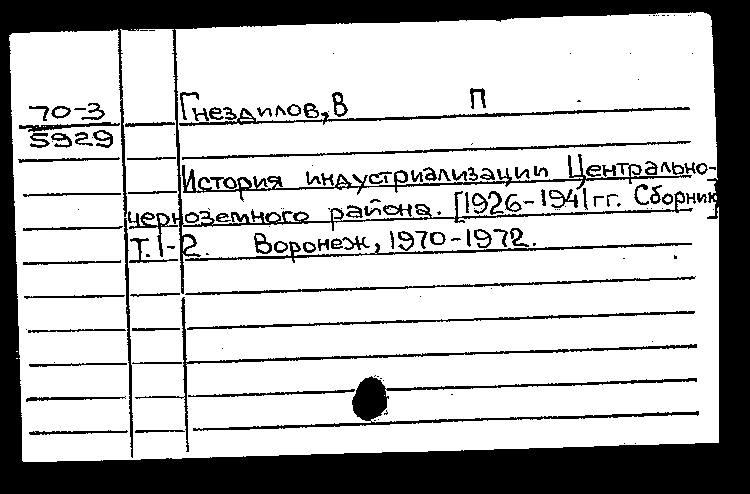 70-3 Гнездилов, В П
5929
История индустриализации Центрально-
черноземного района. [1926-1941 гг. Сборник]
Т.1-2. Воронеж, 1970-1972.